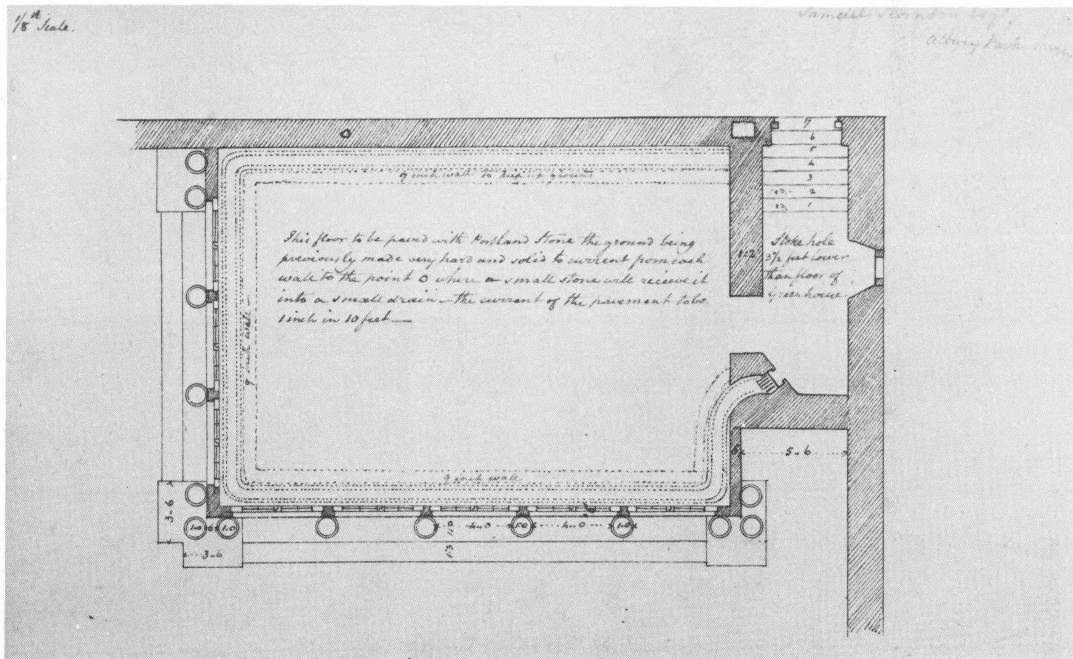 1/8th Scale.
Samuel Thornton Esqr.
Albury Park Surrey
7
6
5
4
3
2
1
9 inch wall to keep up ground
This floor to be paved with Portland Stone the ground being
previously made very hard and solid to current from each
wall to the point O where a small stone will receive it
into a small drain – the current of the pavement to be
1 inch in 10 feet —
Stoke hole
3½ feet lower
than floor of
Greenhouse
9 inch wall
9 inch wall
5-6
3-6
3-6
1.0
1.0
1.0
4-0
1.0
4-0
1.0